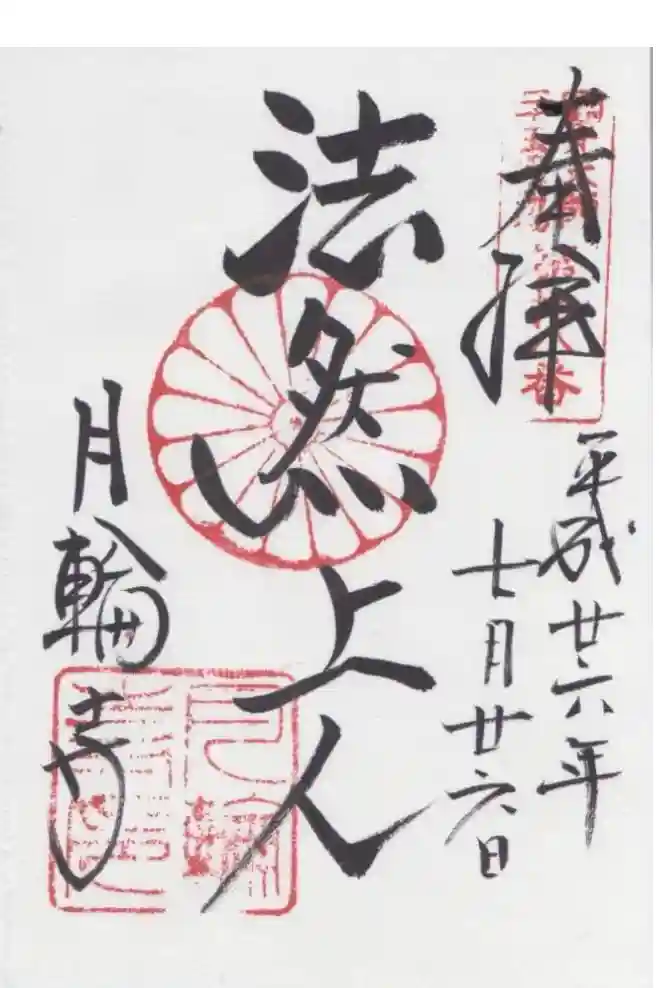 奉拝
平成廿六年
七月廿六日
法然上人
月輪寺